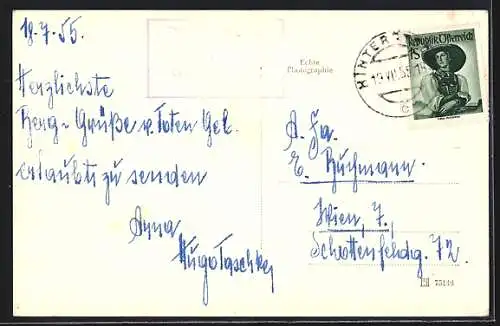 18-7-55.
Herzlichste
Berg-Grüße v. Toten Geb.
erlaubt zu senden
Anna
Hugo Taschke
Echte
Photographie
HINTERST
19.VII.55
Republik Österreich
A. Fa.
E. Buchmann.
Wien, 7.,
Schottenfeldg. 72.